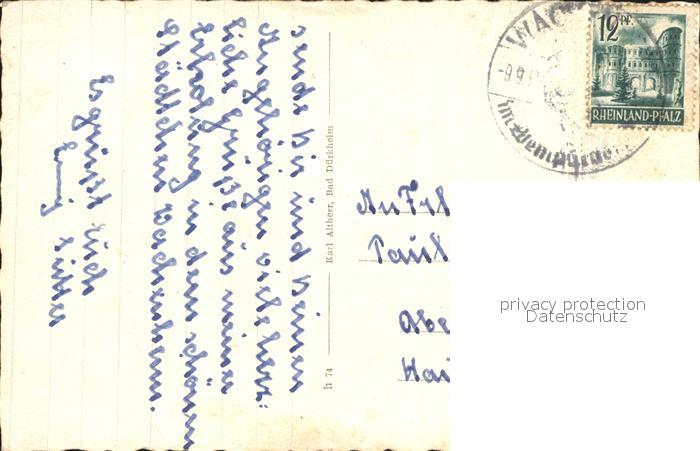 sende Dir und Deinen
Angehörigen viele herz-
liche Grüße aus meiner
Erholung in dem schönen
Städtchen Wachenheim.
Es grüßt Euch
h 74
Karl Altherr, Bad Dürkheim
WAC
-9.9.
12 PF.
RHEINLAND-PFALZ
An Frl
Paul
Abe
Hai
privacy protection
Datenschutz